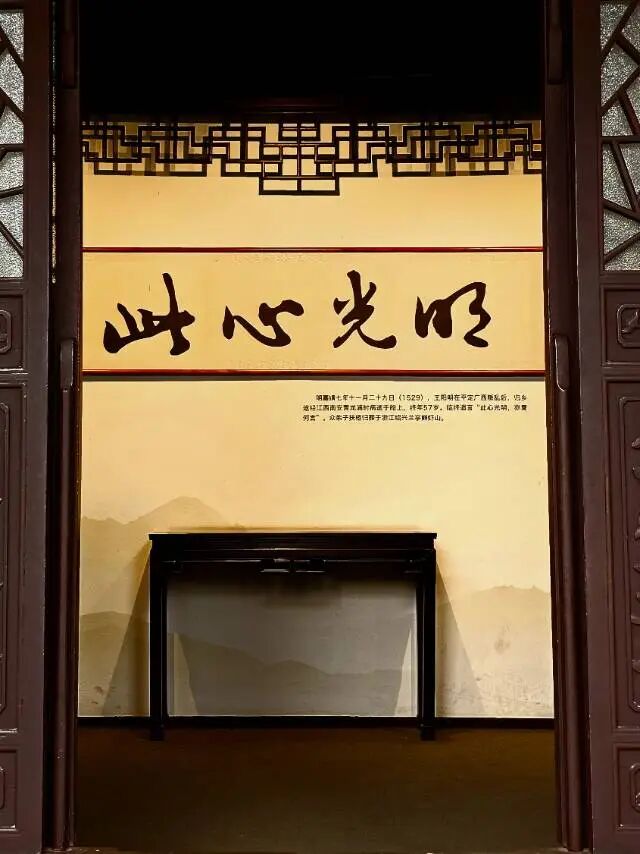 此心光明
明嘉靖七年十一月二十九日（1529），王阳明在平定广西叛乱后，归乡
途经江西南安青龙浦时病逝于船上，终年57岁。临终遗言“此心光明，亦复
何言”。众弟子扶榇归葬于浙江绍兴兰亭鲜虾山。